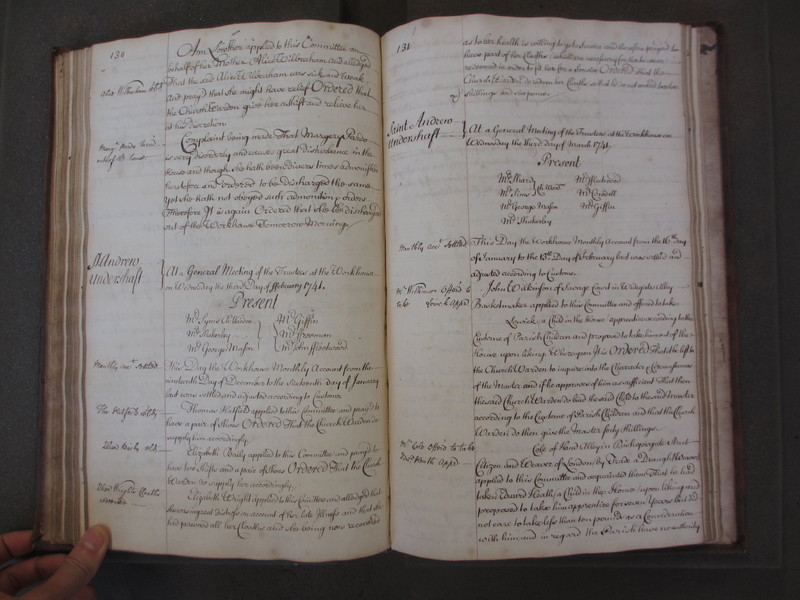 130
Ann Lowther applied to this Committee on
behalf of her Mother Alice Wilbraham and alledged
That the said Alice Wilbraham was sick and weak
Alice Wilbraham
and pray'd that she might have relief Ordered that
the Church Warden give her a shift and relieve her
at his discretion
Complaint being made That Margery Pardo
is very disorderly and causes great disturbance in the
House and though she hath been divers times admonished
heretofore and ordered to be discharged the same
yet she hath not obeyed such admonition & orders
Therefore It is again Ordered that she be discharged
out of the Workhouse Tomorrow Morning
St Andrew
Undershaft
At a General Meeting of the Trustees at the Workhouse
on Wednesday the third Day of ffebruary 1741.
Present
Mr Giffin
Mr Shikerley
Mr George Mason
Mr John ffleetwood
Monthly acct settled
This Day the Workhouse Monthly Account from the
nineteenth Day of December to the sixteenth day of January
last were settled and adjusted according to Custome
Thomas Hatfield applied to this Committee and pray'd to
have a pair of shoes Ordered That the Church Warden do
supply him accordingly.
Elizabeth Baily applied to this Committee and pray'd to
have two shifts and a pair of shoes Ordered That the Church
Warden do supply her accordingly.
Elizabeth Wright applied to this Committee and alledged that
she was in great distress on account of her late Illness and that she
had pawned all her Cloaths and she being now recovered
131
as to her health is willing to get service and therefore prayed to
have part of her Cloaths
redeemed in order to fit her for a Service Ordered that the
shillings and sixpence.
Saint Andrew
Undershaft
At a General Meeting of the Trustees at the Workhouse on
Wednesday the third day of March 1741.
Present
Mr Hardy
Mr ffleetwood
Mr Syms
Mr George Mason
Mr Giffin
Mr Shikerley
Monthly acct settled
This Day the Workhouse Monthly Account from the 16th day
of January to the 13th Day of ffebruary last was settled and
adjusted according to Custome.
John Wilkinson of George Court in Widegate Alley
Basketmaker applied to this Committee and offered to take
Lowick a Child in the House apprentice according to the
Custome of Parish Children and propose to take him out of the
House upon liking Whereupon It is Ordered That it be left to
the Church Warden to inquire into the Character & Circumstances
of the Master and if he approve of him as sufficient That then
the said Church Warden do bind the said Child to the said Master
according to the Custome of Parish Children and that the Church
Warden do then give the Master forty shillings.
Cole of Hand Alley in Bishopsgate Street
Citizen and Weaver of London by Trade a Draught Weaver
applied to this Committee and acquainted them That he had
taken Edward Heath a Child in the House upon liking and
proposed to take him apprentice for seven Years but did
not care to take less than ten pounds as a Consideration
with him, and in regard the Parish have no authority